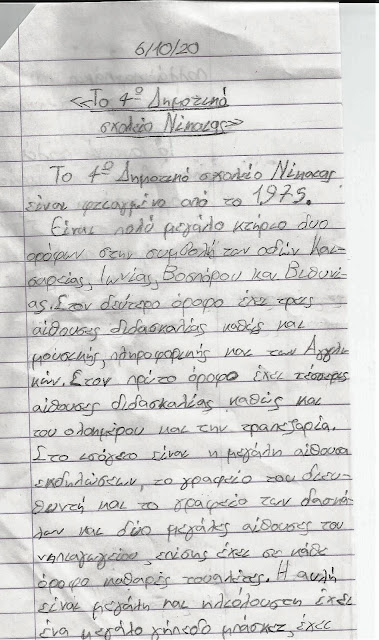 6/10/20
«Το 4º Δημοτικό
σχολείο Νίκαιας»
Το 4º Δημοτικό σχολείο Νίκαιας
είναι φτιαγμένο από το 1975.
Είναι πολύ μεγάλο κτήριο δυο
ορόφων στην συμβολή των οδών Και-
σαρείας, Ιωνίας, Βοσπόρου και Βιθυνί-
ας. Στον δεύτερο όροφο έχει τρεις
αίθουσες διδασκαλίας καθώς και
μουσικής, πληροφορικής και των Αγγλι-
κών. Στον πρώτο όροφο έχει τέσσερις
αίθουσες διδασκαλίας καθώς και
του ολοημέρου και την τραπεζαρία.
Στο ισόγειο είναι η μεγάλη αίθουσα
εκδηλώσεων, το γραφείο του διευ-
θυντή και το γραφείο των δασκά-
λων και δύο μεγάλες αίθουσες του
νηπιαγωγείου, επίσης έχει σε κάθε
όροφο καθαρές τουαλέτες. Η αυλή
είναι μεγάλη και ηλιόλουστη έχει
ένα μεγάλο γήπεδο μπάσκετ, έχει